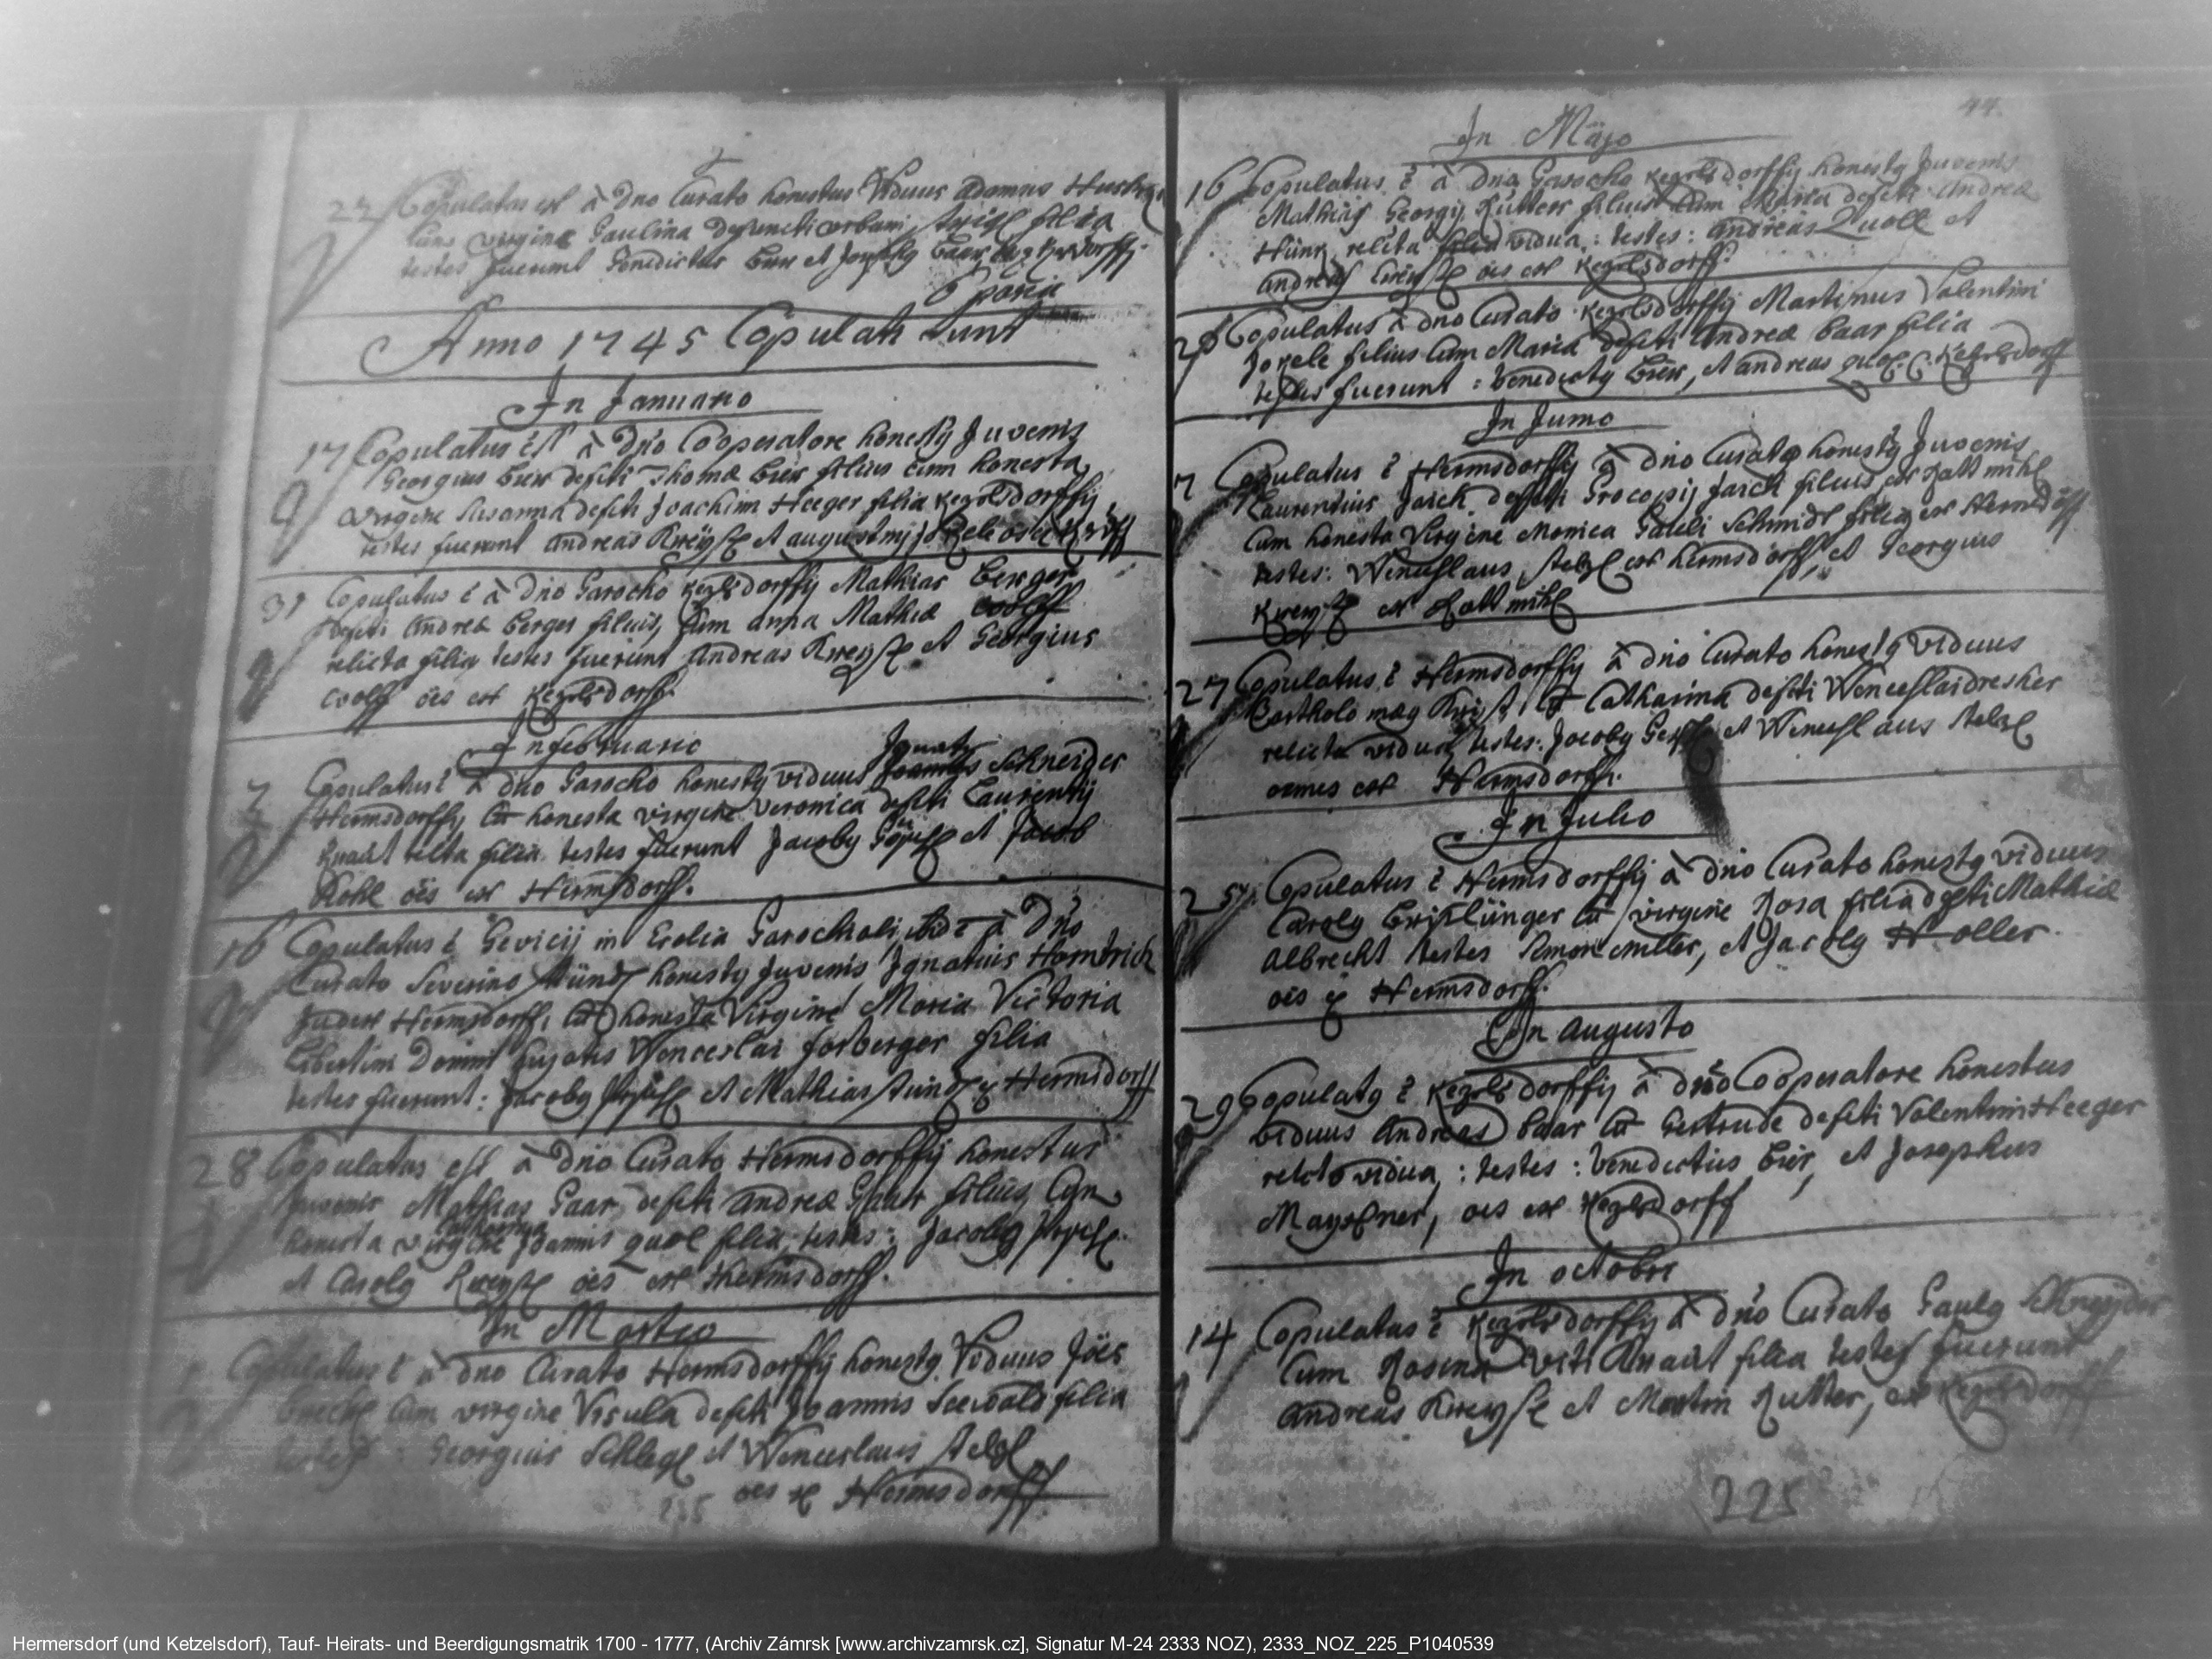 22 Copulatus est à Dno Curato honestus Viduus Adamus
cum virgine Paulina defuncti Urbani filia
testes fuerunt Benedictus Bier et Josephg Baar
6 paria
Anno 1745 Copulati sunt
In Januario
17 Copulatus est à Dno Cooperatore honestg Juvenis
Georgius Bier defcti Thomæ Bier filius cum honesta
virgine Susanna defcti Joachim Heeger filia Kezelsdorffij
testes fuerunt Andreas Kreyße et
31 Copulatus ē à Dno Parocho Kezelsdorffij Mathias Berger
defcti Andreæ Berger filius, cum Anna Mathiæ Wolff
relicta filia testes fuerunt Andreas Kreyße et Georgius
Wolff oēs ex Kezelsdorff.
In februario
7 Copulatus ē à dno Parocho honestg viduus Ignatg Schneider
Hermsdorffij cū honesta virgine Veronica defcti Laurentij
Knaut relta filia testes fuerunt Jacobg et Jacob
Kohl oēs ex Hermsdorff.
16 Copulatus ē Gevicij in Ecclia Parochiali ibid à Dno
Curato Severino honestg Juvenis Ignatius
Judex Hermsdorff, cū honesta Virgine Maria Victoria
Libertini Domini hujatis Wenceslai forberger filia
testes fuerunt: Jacobg et Mathias ex Hermsdorff
28 Copulatus est à Dno Curato Hermsdorffij honestus
Juvenis Mathias Paar defcti Andreæ Paar filius, Cum
Catharina
honesta virgine Joannis quol filia, testes: Jacobg
et Carolg Kreyße oēs ex Hermsdorff.
In Martio
Copulatus ē à dno Curato Hermsdorffij honestg Viduus Joēs
cum virgine Vrsula defcti Joannis Seewald filia
testes: Georgius Schlegl et Wenceslaus Stelzl
oēs ex Hermsdorff
225
44.
In Majo
16 Copulatus ē à Dno Parocho Kezelsdorffij honestg Juvenis
Mathias Georgij Rutter filius cum Maria defcti Andreæ
relicta filia vidua: testes: Andreas Quoll et
Andreas Kreyße oēs ex Kezelsdorff.
Copulatus à dno Curato Kezelsdorffij Martinus Valentini
Jokele filius cum Maria defcti Andreæ Baar filia
testes fuerunt: Benedictg Bier, et Andreas quol Kezelsdorff
In Junio
7 Copulatus ē Hermsdorffij à dno Curato honestg Juvenis
Laurentius Jarch defcti Procopij Jarch filius ex
Cum honesta Virgine Monica Pauli Schmidt filia ex
testes: Wenceslaus Stelzl ex Hermsdorff, et Georgius
Kreyße ex
27 Copulatus ē Hermsdorffij à dno Curato honestg viduus
Bartholomæg cū Catharina defcti Wenceslai dresher
relicta vidua testes: Jacobg et Wenceslaus Stelzl
omnes ex Hermsdorff.
In Julio
25 Copulatus ē Hermsdorffij à Dno Curato honestg viduus
Carolg cū virgine Rosa filia defcti Mathiæ
Albrecht testes Simon Miller, et Jacobg Holler
oēs ex Hermsdorff.
In Augusto
29 Copulatg ē Kezelsdorffij à dno Cooperatore honestus
viduus Andreas Baar cū Gertrude defcti Valentini Heeger
relicto vidua: testes: Benedictus Bier, et Josephus
oēs ex Kezelsdorff
In octobri
14 Copulatus ē Kezelsdorffij à dno Curato Paulg Schneyder
Cum Rosina Viti Knaut filia testes fuerunt
Andreas Kreyße et Martin Rutter, ex Kezelsdorff
225
Hermersdorf (und Ketzelsdorf), Tauf- Heirats- und Beerdigungsmatrik 1700 - 1777, (Archiv Zámrsk [www.archivzamrsk.cz], Signatur M-24 2333 NOZ), 2333_NOZ_225_P1040539